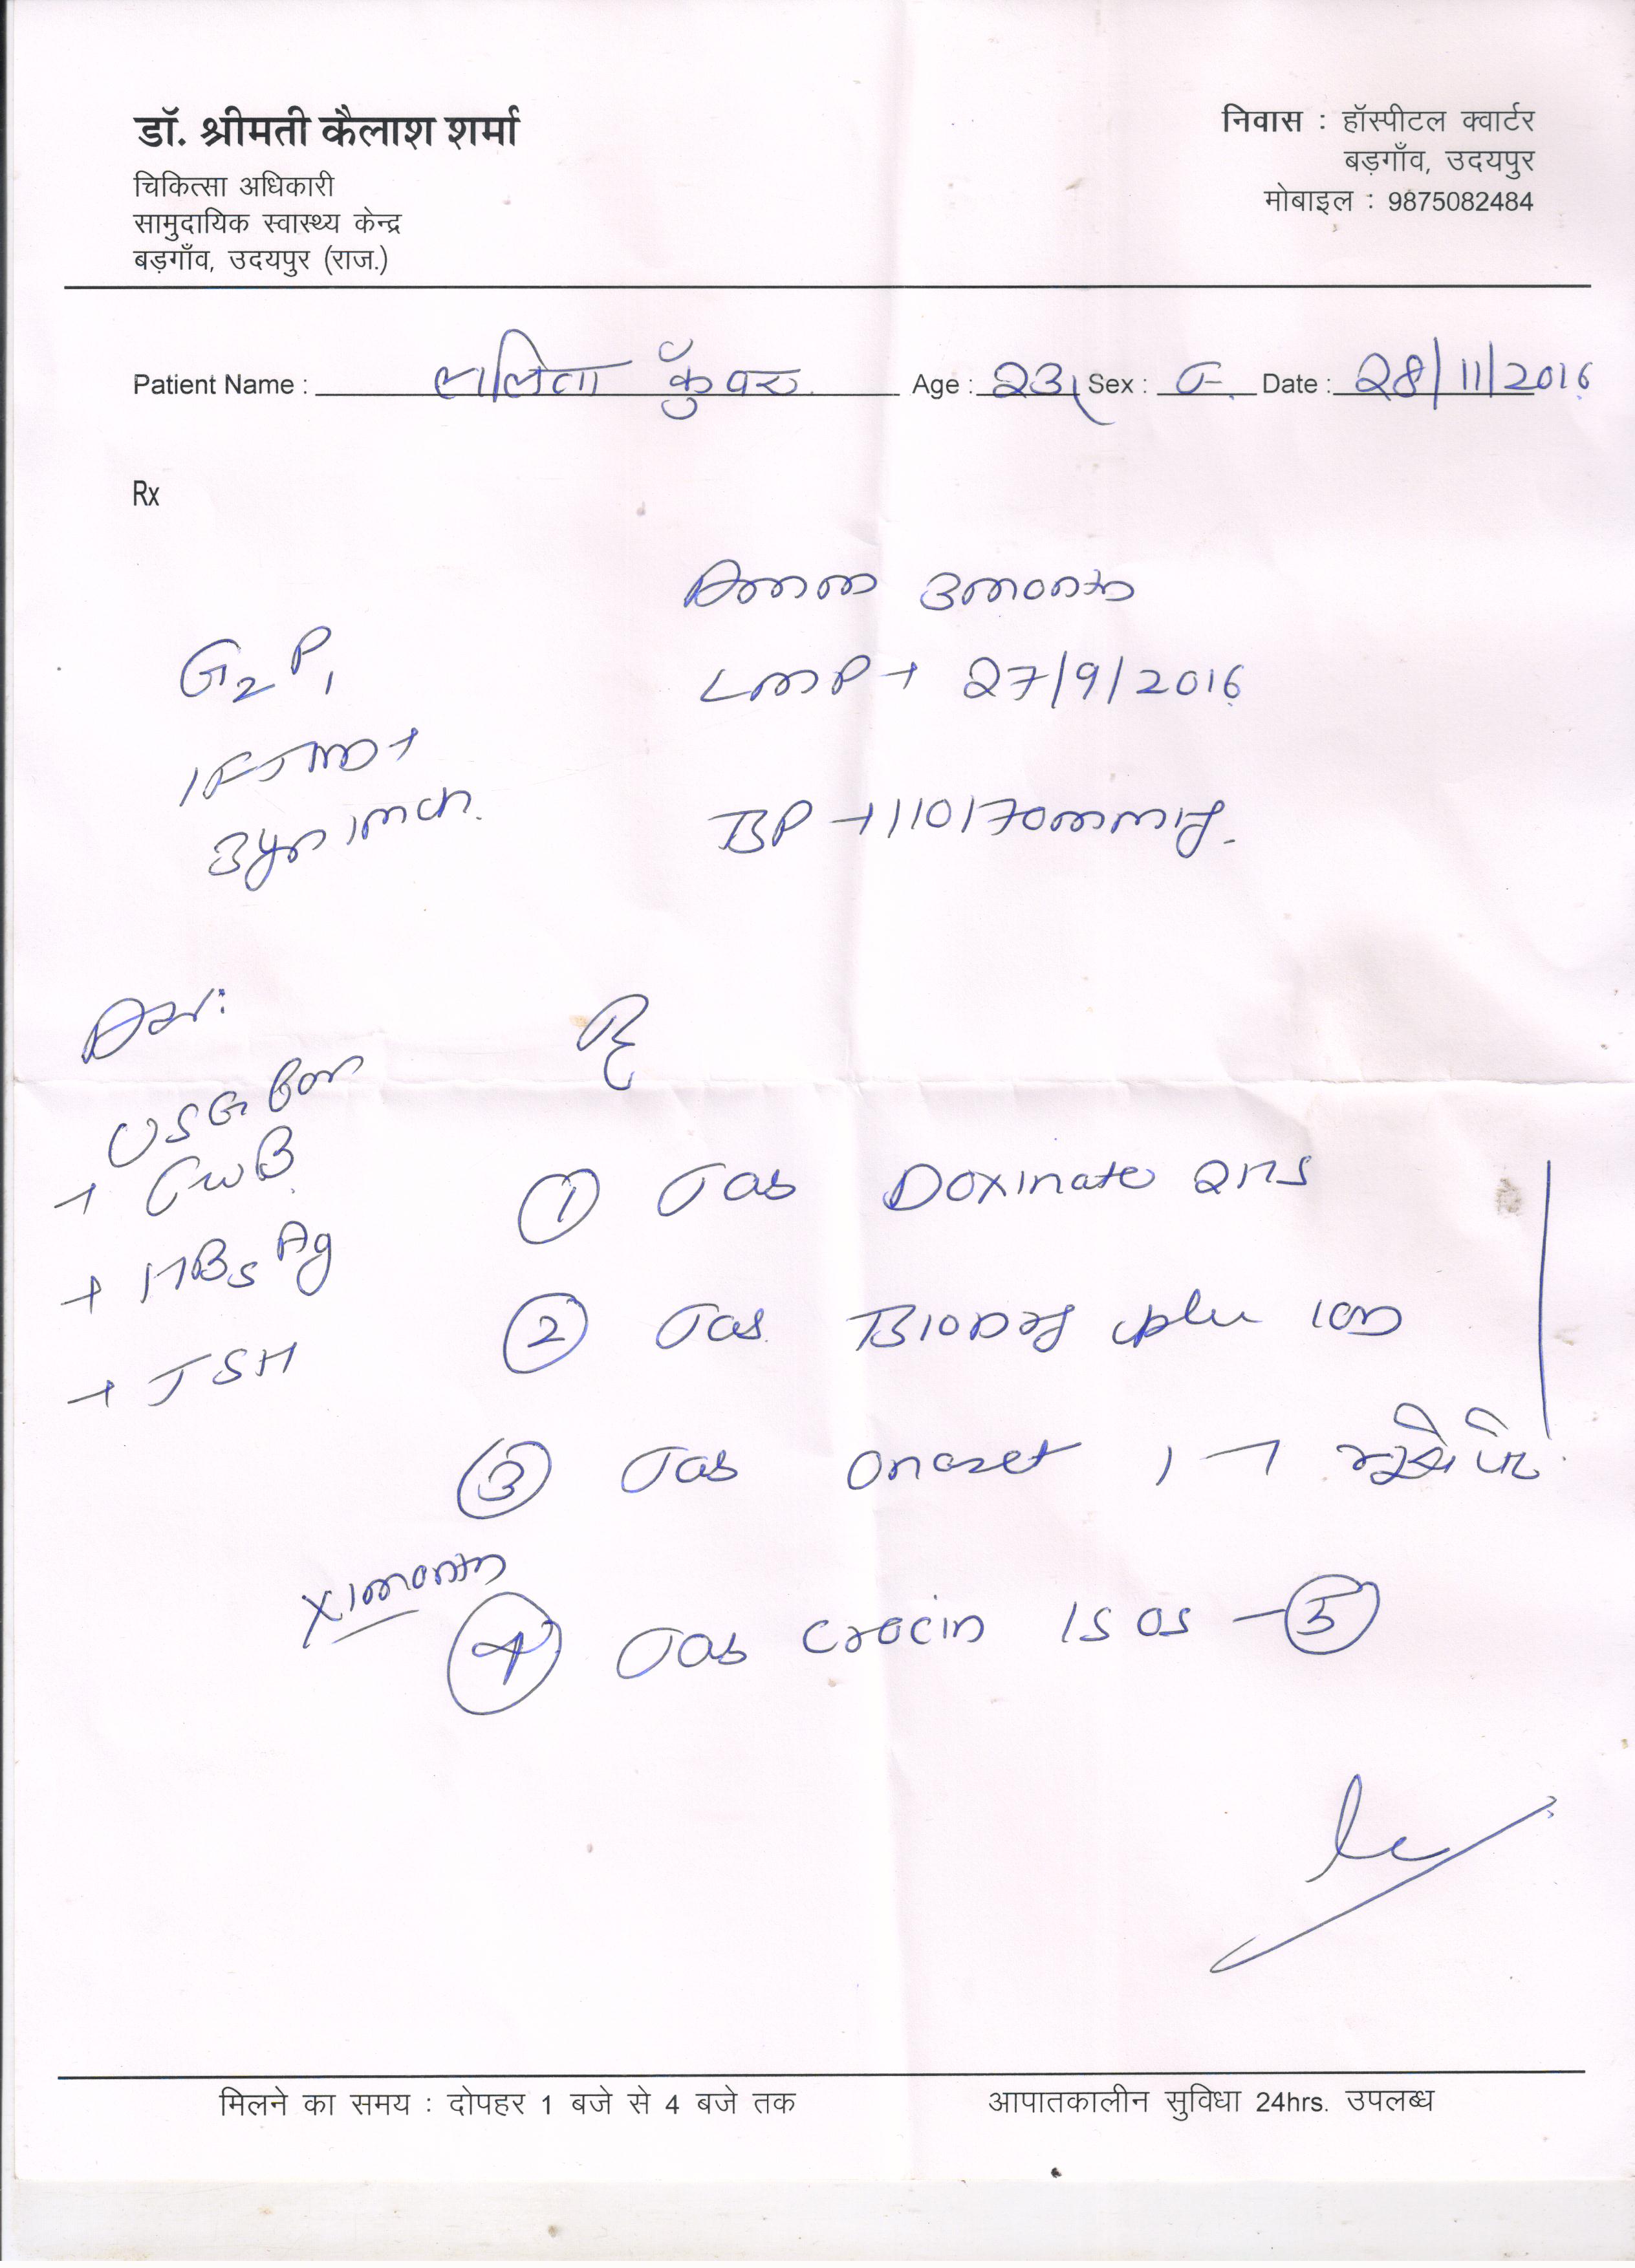 डॉ. श्रीमती कैलाश शर्मा
चिकित्सा अधिकारी
सामुदायिक स्वास्थ्य केन्द्र
बड़गाँव, उदयपुर (राज.)
निवास : हॉस्पीटल क्वार्टर
बड़गाँव, उदयपुर
मोबाइल : 9875082484
Patient Name : ललिता कुँवर Age : 23 Sex : F Date : 28/11/2016
Rx
3 month
G2 P1
LMP → 27/9/2016
1 FTND
3yr
BP → 110/70 mmHg
USG for
FWB
→ HBsAg
→ TSH
① Tab Doxinate 2 HS
② Tab 1 OD
③ Tab Ondset 1
x 1 month
④ Tab Crocin 1 SOS - ⑤
मिलने का समय : दोपहर 1 बजे से 4 बजे तक
आपातकालीन सुविधा 24hrs. उपलब्ध